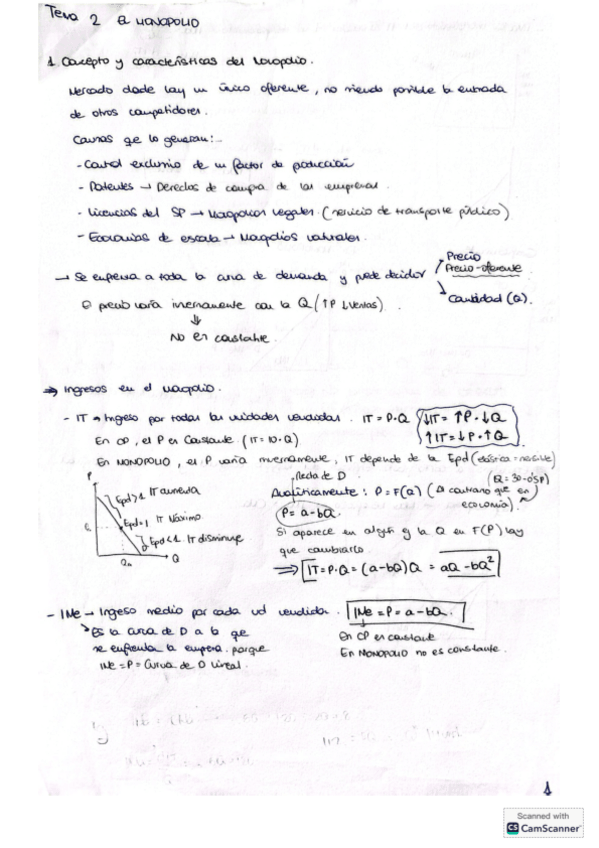 Tema 2 EL MONOPOLIO
1. Concepto y características del Monopolio.
Mercado donde hay un único oferente, no siendo posible la entrada
de otros competidores.
Causas que lo generan:
- Control exclusivo de un factor de producción
- Patentes → Derechos de compra de las empresas.
- Licencias del SP → Monopolios legales. (servicio de transporte público)
- Economías de escala → Monopolios naturales.
→ Se enfrenta a toda la curva de demanda y puede decidir
Precio
Precio-oferente
Cantidad (Q).
El precio varía inversamente con la Q (↑P ↓Ventas).
⇓
No es constante.
⇒ Ingresos en el Monopolio.
- IT → Ingreso por todas las unidades vendidas. IT = P·Q
↓IT = ↑P·↓Q
↑IT = ↓P·↑Q
En CP, el P es Constante. (IT = 10·Q)
En MONOPOLIO, el P varía inversamente, IT depende de la Epd
Recta de D
(Q = 30-0'5P)
Analíticamente: P = F(Q) (Al contrario que en
economía).
P = a-bQ
Si aparece en algún ej la Q en F(P) hay
que cambiarlo.
⇒ IT = P·Q = (a-bQ)Q = aQ - bQ²
P
Epd>1 IT aumenta
Epd=1 IT Máximo
Epd<1 IT disminuye
Q
- IMe → Ingreso medio por cada ud vendida. IMe = P = a - bQ.
Es la curva de D a la que
se enfrenta la empresa. porque
IMe = P = Curva de D Lineal.
En CP es constante
En MONOPOLIO no es constante.
1
Scanned with
CS CamScanner